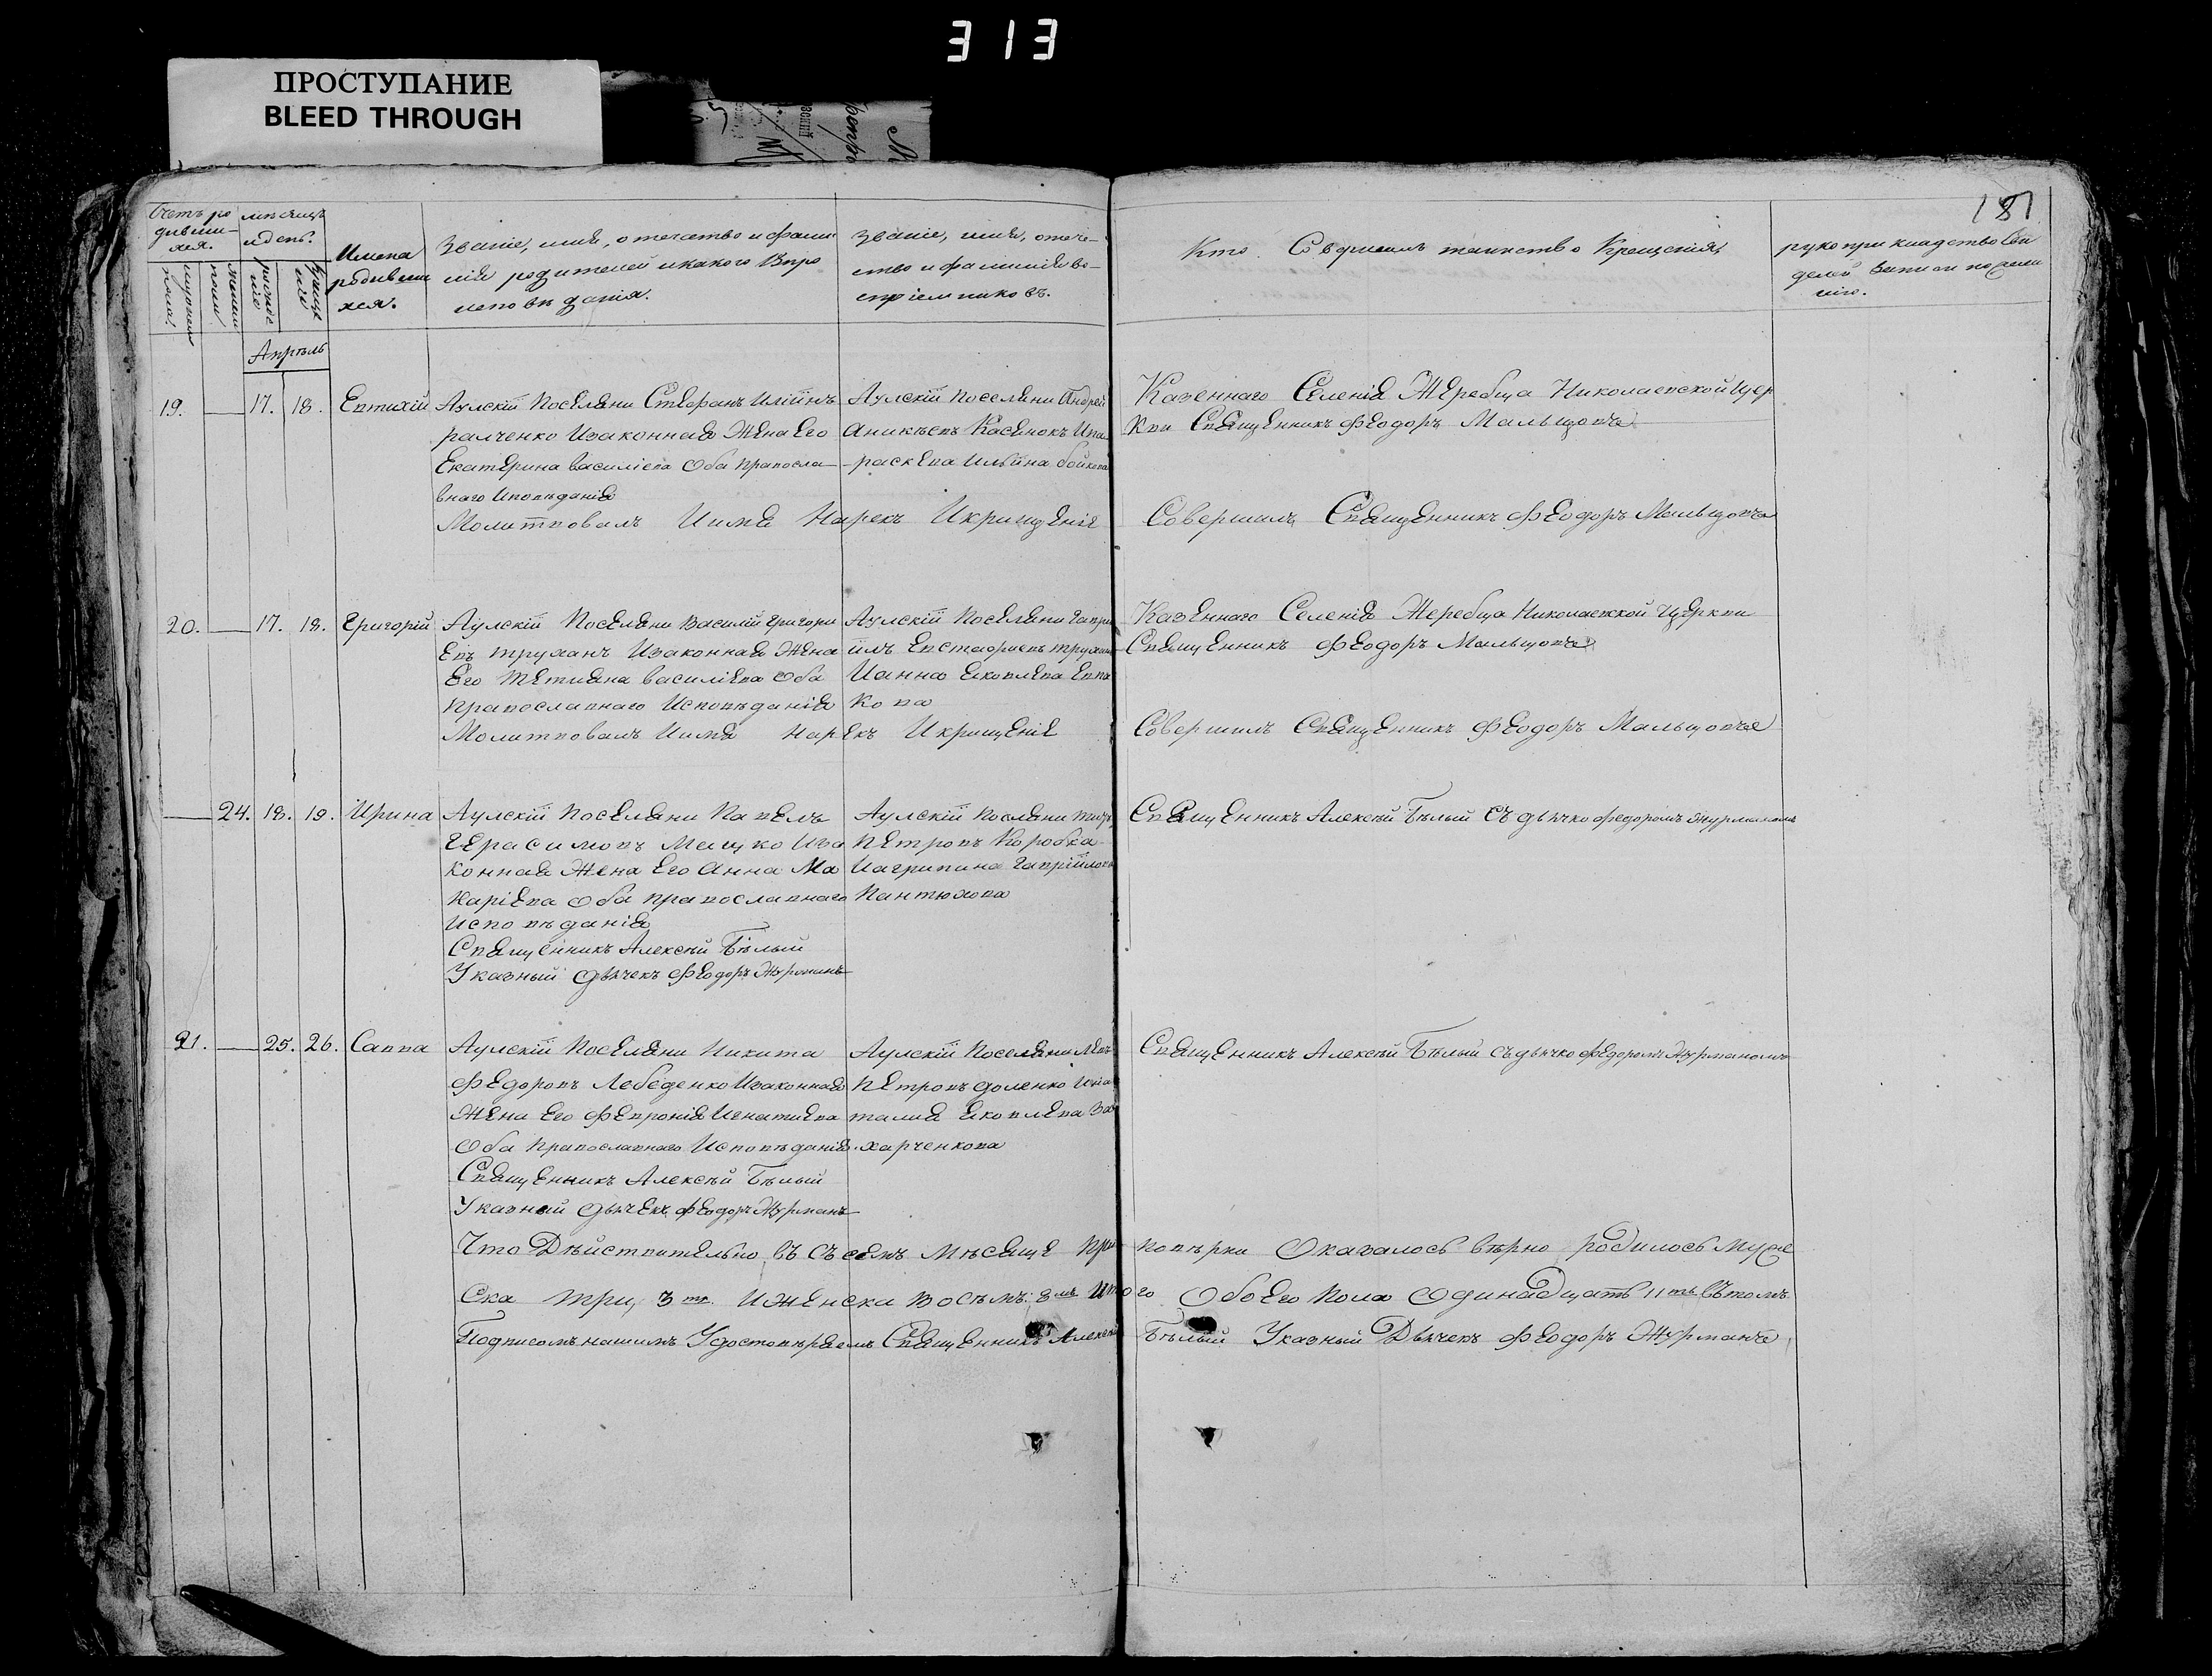 313
ПРОСТУПАНИЕ
BLEED THROUGH
181
Счетъ ро
дивши-
хся.
мѣсяцъ
и день.
Имена
родивши
хся.
Званіе, имя, отечество и фами
лія родителей и какого Вѣро
исповѣданія.
Званіе, имя, отече-
ство и фамилія во-
спріемниковъ.
Кто Совершилъ таинство Крещенія
рукоприкладство Сви
детелей
Апрѣль
19. — 17. 18. Евтихій
Аулскій Поселяни Стефанъ Иліинъ
ралченко Изаконная Жена Его
Екатерина василіева Оба православ
внаго Исповѣданія
Молитвовалъ Иимя Нарекъ Икрищеніе
Аулскій Поселяни Андрей
Аникѣевъ Касенокъ Ипа
раскева Ильина бойкова
Казеннаго Селенія Жеребца Николаевской Цер
кви Священникъ Феодоръ Мальцовъ
Совершилъ Священникъ Феодоръ Мальцовъ
20. — 17. 18. Григорій
Аулскій Поселяни Василій Григори
Евъ труханъ Изаконная Жена
Его Тетияна василіева Оба
Православнаго Исповѣданія
Молитвовалъ Иимя Нарекъ Икрищеніе
Аулскій Поселяни Гаври
илъ Евстафиевъ трухан
Ианна Яковлева Евва
кова
Казеннаго Селенія Жеребца Николаевской Церкви
Священникъ Феодоръ Мальцовъ
Совершилъ Священникъ Феодоръ Мальцовъ
— 24. 18. 19. Ирина
Аулскій Поселяни Павелъ
Герасимовъ Мацко Иза
конная Жена Его Анна Ма
каріева Оба православнаго
Исповѣданія
Священникъ Алексѣй Бѣлый
Указный Дьячекъ Феодоръ Журманъ
Аулскій Поселяни
Петровъ Коробка
Иагрипина Гавріилова
Пантюхова
Священникъ Алексѣй Бѣлый Съ дьячко Федоромъ Журманомъ
21. — 25. 26. Савва
Аулскій Поселяни Никита
Федоровъ Лебеденко Изаконная
Жена Его Февронія Игнатиева
Оба Православнаго Исповѣданія.
Священникъ Алексѣй Бѣлый
Указный Дьячекъ Феодоръ Журманъ
Аулскій Поселяни Левъ
Петровъ доленко Ина
талия Яковлева За
харченкова
Священникъ Алексѣй Бѣлый Съ дьячко Федоромъ Журманомъ
Что Дѣйствительно въ Съ семъ Мѣсяце При повѣрки Оказалось вѣрно родилось муже
Ска три, 3 ти Иженска Восѣмъ 8мь Итого Обоего Пола Одинадцать 11ть Вътомъ
Подписомъ нашимъ Удостовѣряемъ Священникъ Алексѣй Бѣлый Указный Дьячекъ Феодоръ Журманъ